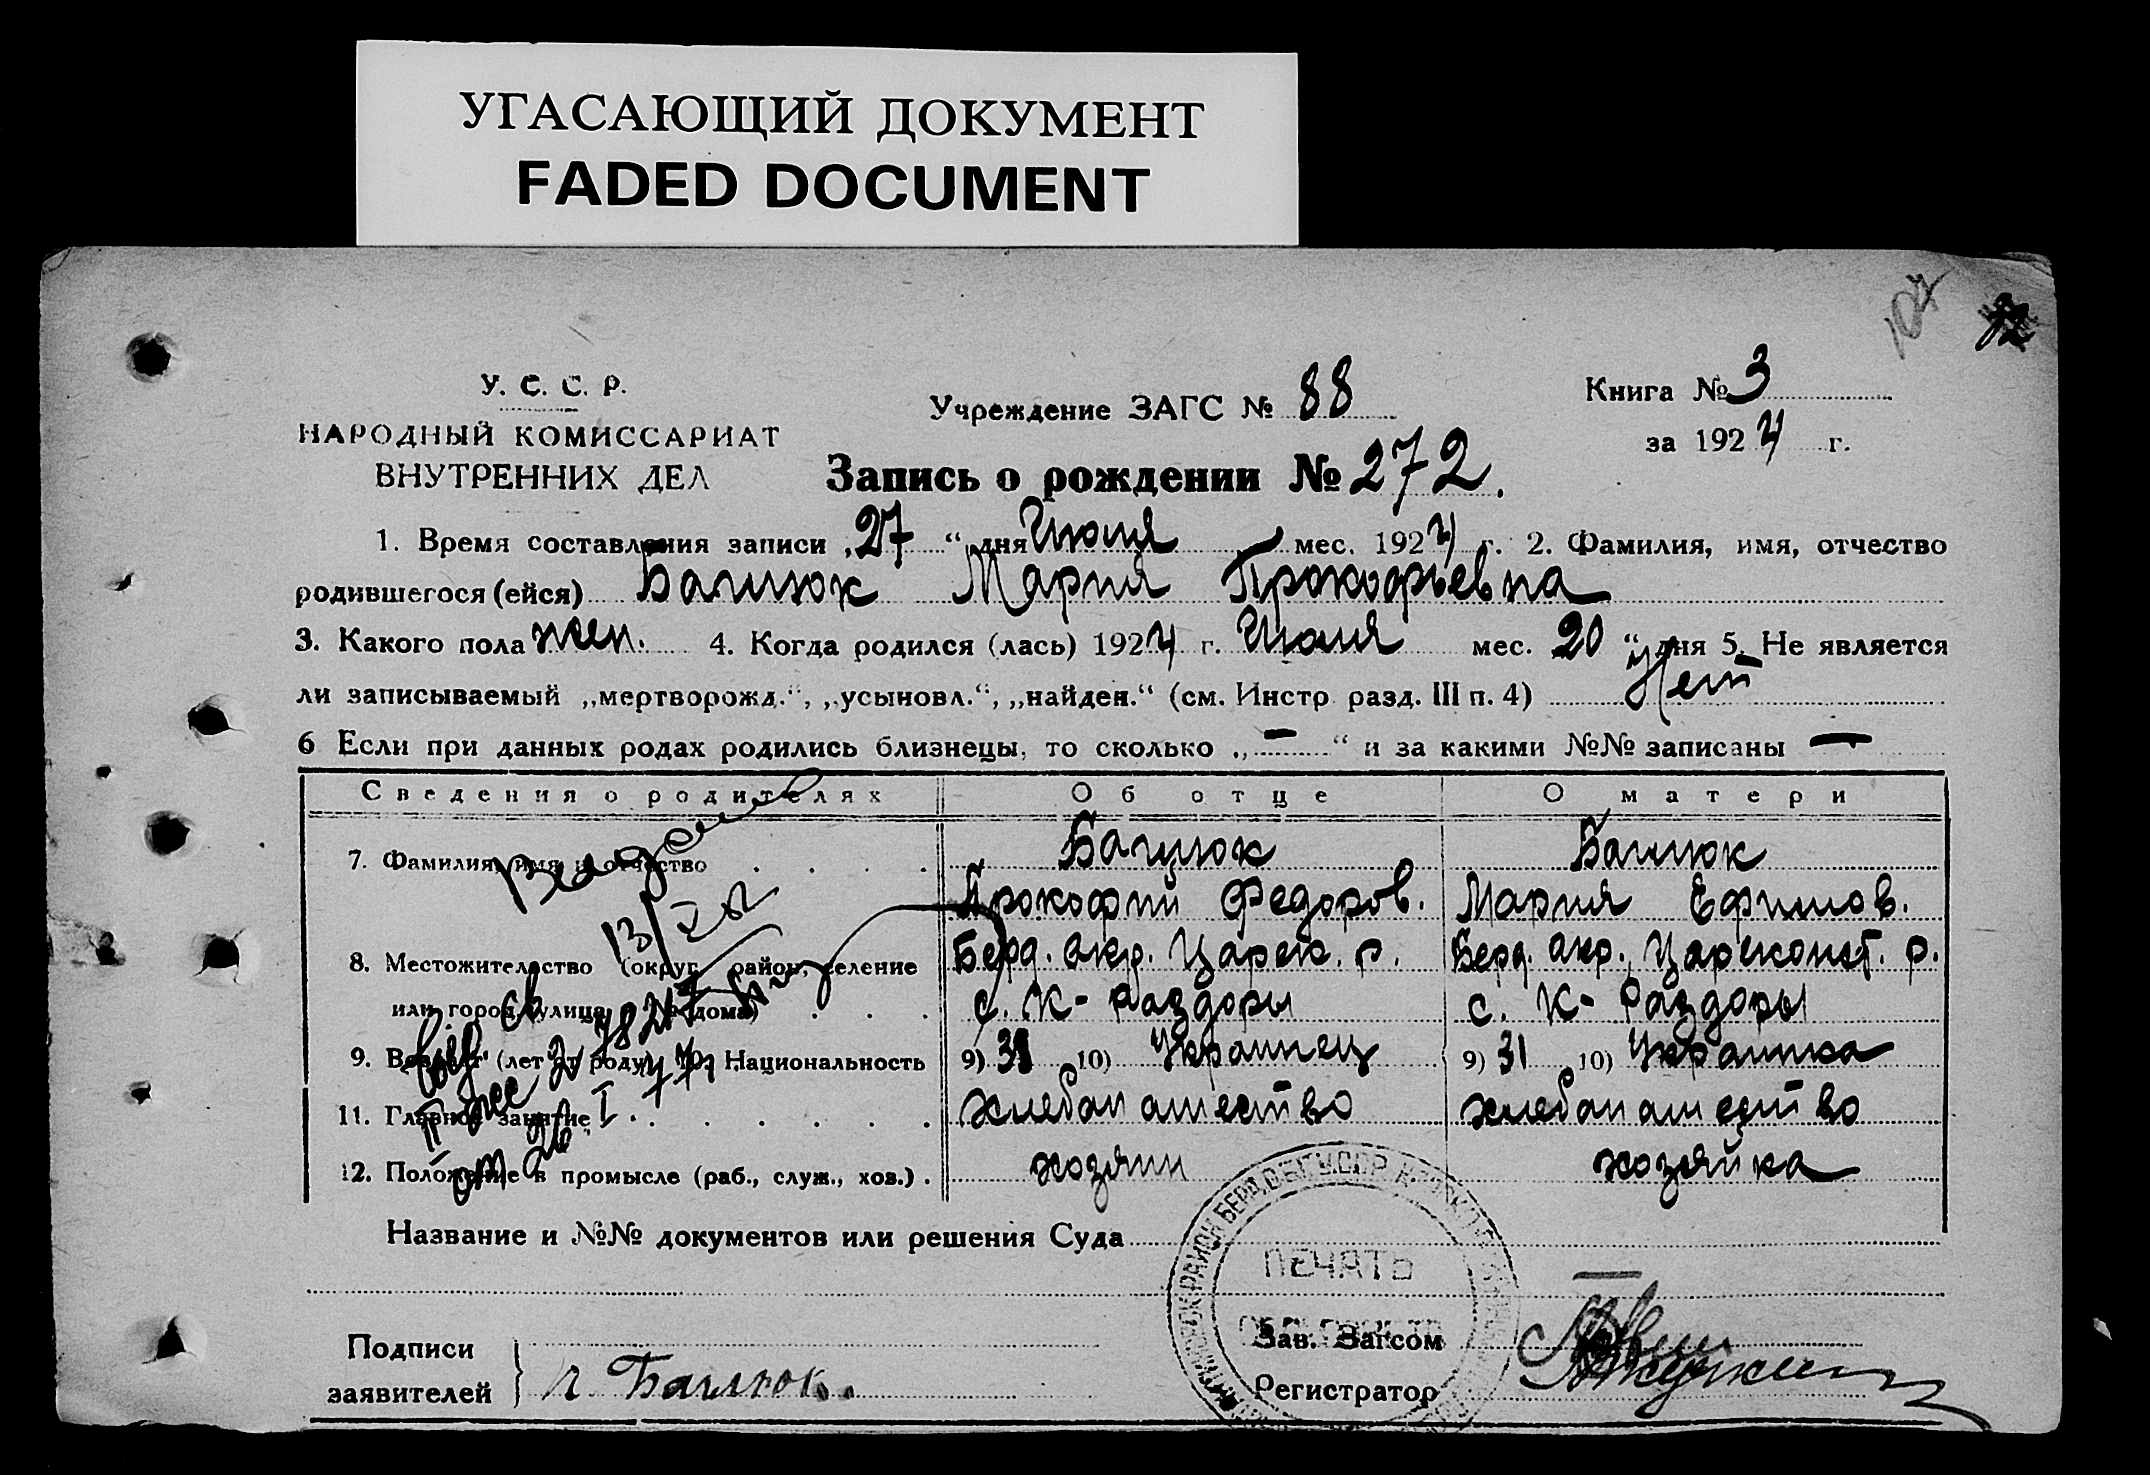 УГАСАЮЩИЙ ДОКУМЕНТ
FADED DOCUMENT
107 92
У. С. С. Р.
НАРОДНЫЙ КОМИССАРИАТ
ВНУТРЕННИХ ДЕЛ
Учреждение ЗАГС № 88
Книга № 3
за 1924 г.
Запись о рождении № 272.
1. Время составления записи „27“ дня Июля мес. 1924 г. 2. Фамилия, имя, отчество
родившегося (ейся) Баглюк Мария Прокофьевна
3. Какого пола жен. 4. Когда родился (лась) 1924 г. Июля мес. 20 “ дня 5. Не является
ли записываемый „мертворожд.“, „усыновл.“, „найден.“ (см. Инстр. разд. III п. 4) Нет
6 Если при данных родах родились близнецы, то сколько „—“ и за какими №№ записаны —
Сведения о родителях Об отце О матери
7. Фамилия, имя и отчество Баглюк Баглюк
Прокофий Федоров. Мария Ефимов.
8. Местожительство (округ, район, селение Берд. окр. Царек. р. Берд. окр., Цареконст. р.
или город, улица, № дома) с. К-Раздоры с. К-Раздоры
9. Возраст (лет от роду) 10. Национальность 9) 31 10) Украинец 9) 31 10) Украинка
11. Главное занятие хлебопашество хлебопашество
12. Положение в промысле (раб., служ., хоз.) хозяин хозяйка
Название и №№ документов или решения Суда
ПЕЧАТЬ
Подписи
заявителей П Баглюк.
Зав. Загсом
Регистратор